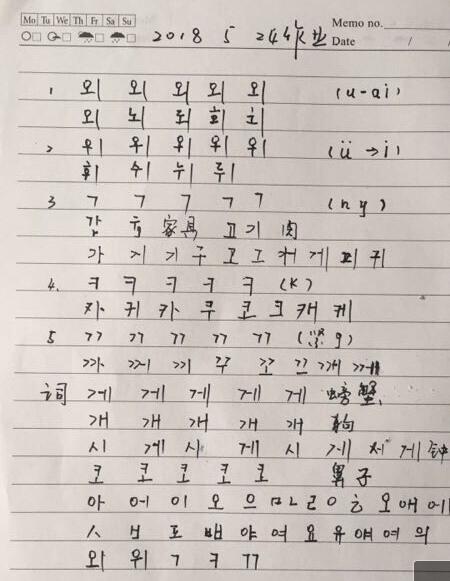 Mo Tu We Th Fr Sa Su
Memo no.
Date / /
2018 5 24 作业
1 외 외 외 외 외 (u-ai)
외 뇌 되 회 최
2、 위 위 위 위 위 (ü→i)
휘 쉬 뉘 뤼
3 ㄱ ㄱ ㄱ ㄱ ㄱ (ng)
家具 고기 肉
가 거 기 구 고 그 개 게 괴 귀
4. ㅋ ㅋ ㅋ ㅋ ㅋ (K)
카 커 카 쿠 코 크 캐 케
5 ㄲ ㄲ ㄲ ㄲ ㄲ (紧g)
까 꺼 끼 꾸 꼬 끄 깨 께
词 게 게 게 게 게 螃蟹、
개 개 개 개 개 狗
시 계 시 계 시 계 시 계 钟
코 코 코 코 코 鼻子
아 어 이 오 으 ㅁ ㄴ ㄹ ㅇ ㅎ 우 애 에
ㅅ ㅂ ㅍ ㅃ 야 여 요 유 얘 예 의
외 위 ㄱ ㅋ ㄲ